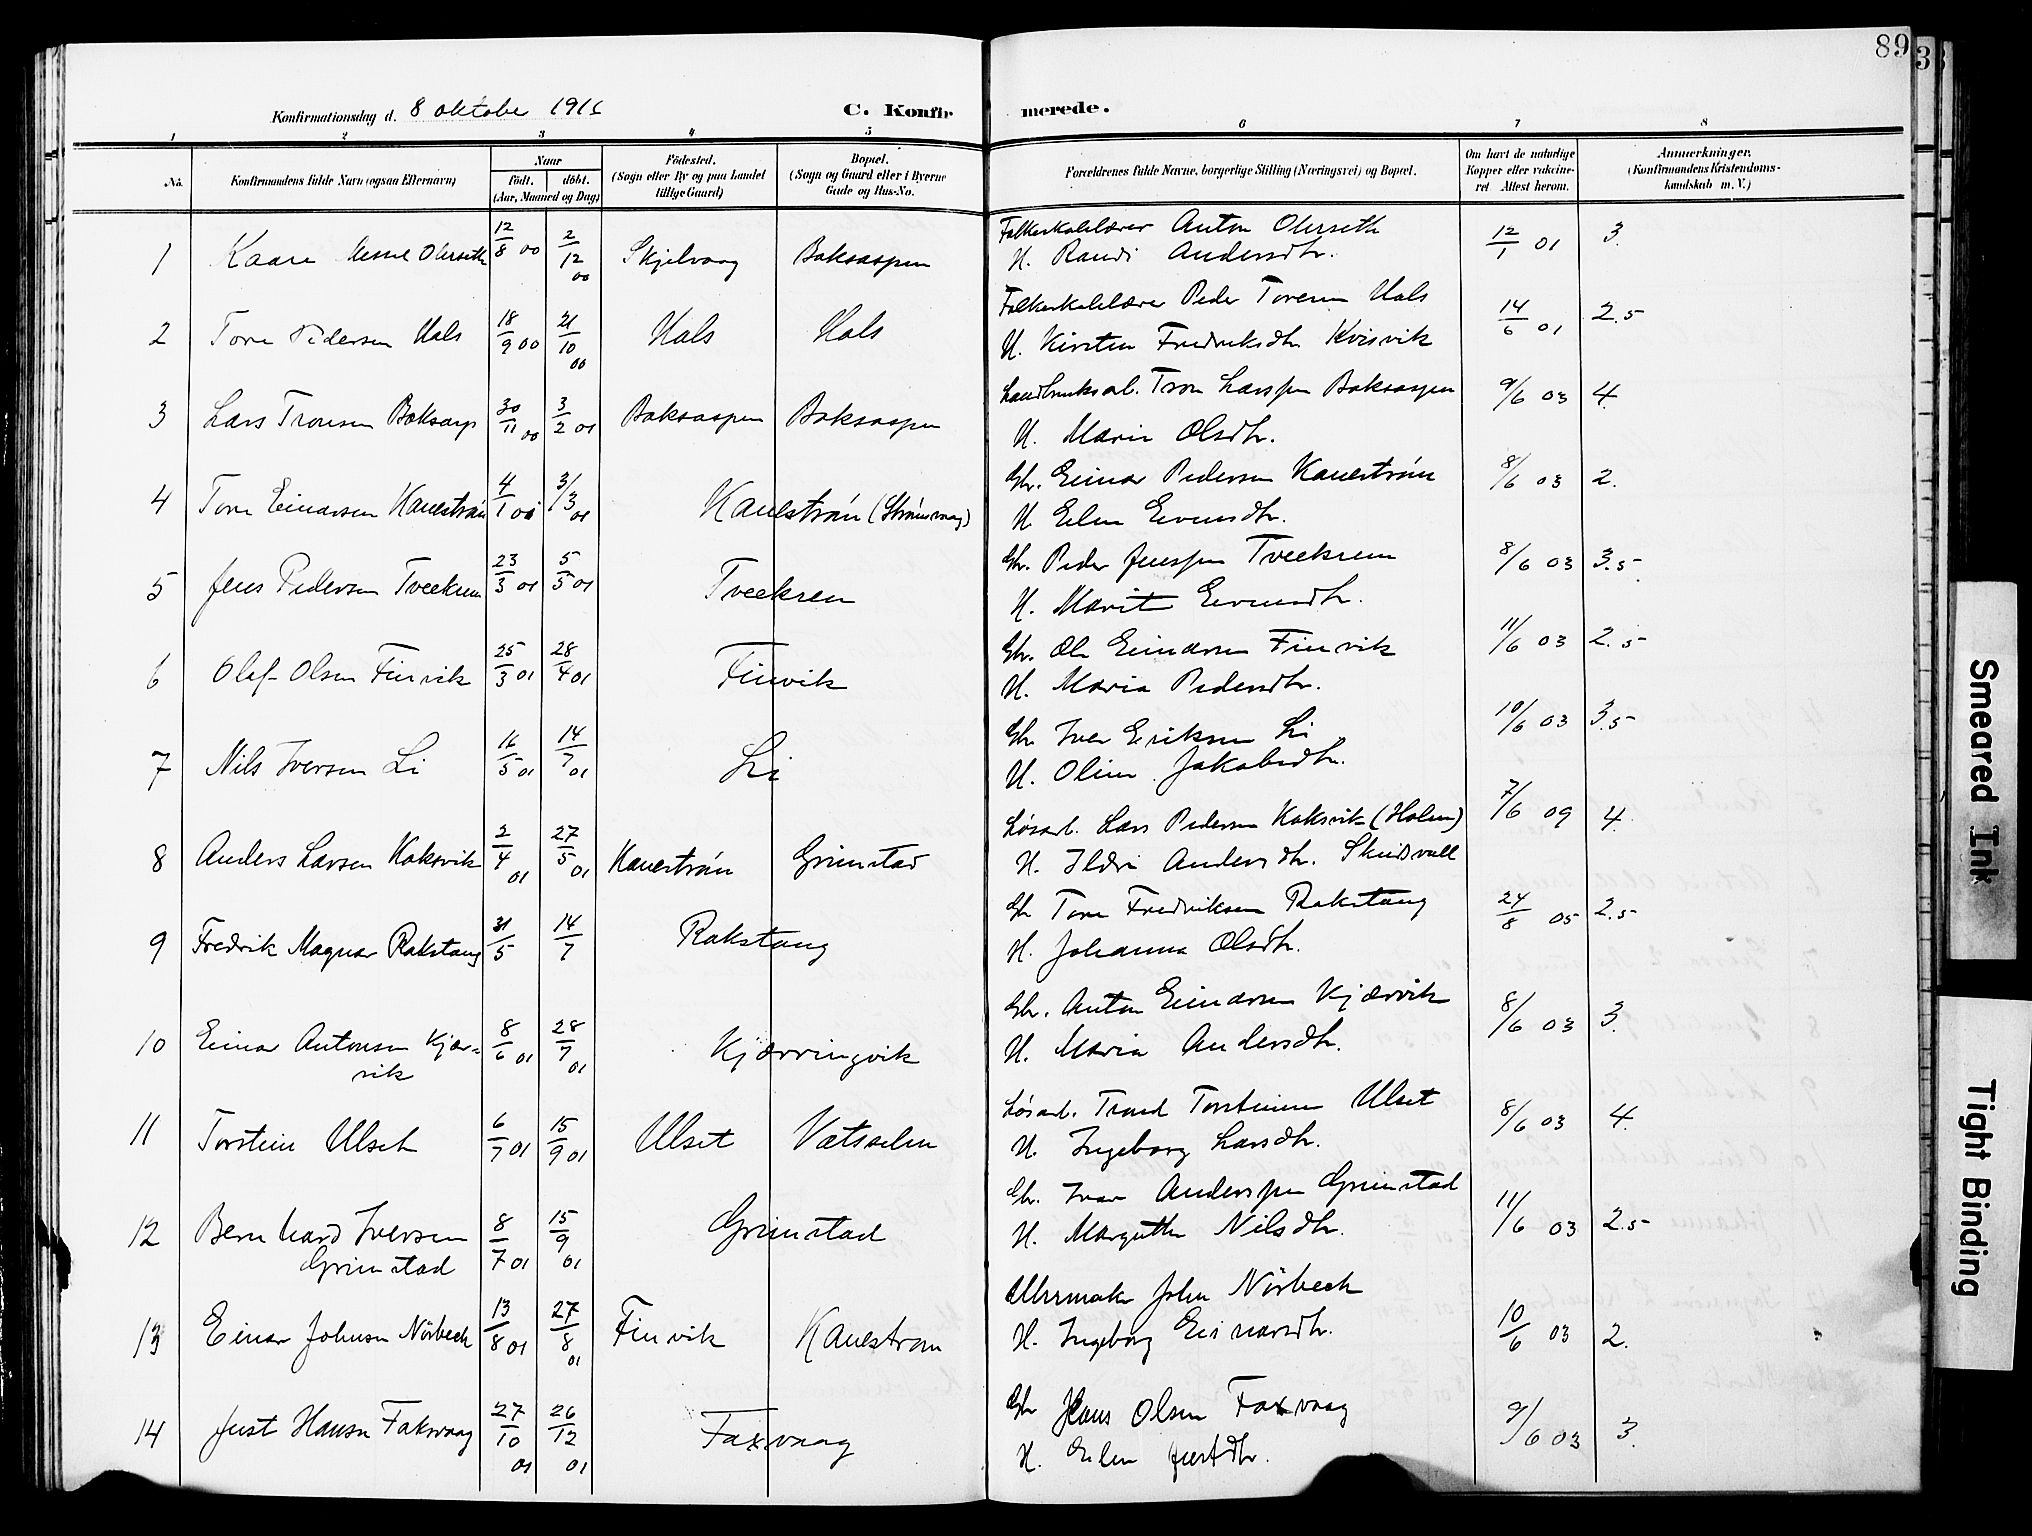 89
Konfirmationsdag d. 8 oktober 1916
C. Konfirmerede.
1 2 3 4 5 6 7 8
No.
Konfirmandens fulde Navn (ogsaa Efternavn)
Naar
født. døbt.
(Aar, Maaned og Dag)
Fødested.
(Sogn eller By og paa Landet
tillige Gaard)
Bopæl.
(Sogn og Gaard eller i Byerne
Gade og Hus-No.
Forældrenes fulde Navne, borgerlige Stilling (Næringsvei) og Bopæl.
Om havt de naturlige
Kopper eller vaccine-
ret Attest herom.
Anmærkninger.
(Konfirmandens Kristendoms-
kundskab m. V.)
1 Kaare Olerseth 12/8 00 2/12 00 Skjelvaag Boksaspen Folkeskolelærer Anton Olerseth 12/1 01 3.
H. Randi Andersdtr.
2 Tore Pedersen Hals 18/9 00 21/10 00 Hals Hals Folkeskolelærer Peder Toresen Hals 14/6 01 2.5
H. Kirsten Fredriksdtr Kvisvik
3 Lars Tronsen Boksasp 30/11 00 3/2 01 Boksaspen Boksaspen Landbruksarb. Tron Larssen Boksaspen 9/6 03 4.
H. Marie Olsdtr.
4 Tore Einarsen Kanestrøm 4/1 01 3/3 01 Kanestrøm (Strømsvaag) Gbr. Einar Pedersen Kanestrøm 8/6 03 2.
H. Elen Evensdtr.
5 Jens Pedersen Tveekrem 23/3 01 5/5 01 Tveekrem Gbr. Peder Jenssen Tveekrem 8/6 03 3.5
H. Marit Evensdtr.
6 Olaf Olsen Finvik 25/3 01 28/4 01 Finvik Gbr. Ole Einarsen Finvik 11/6 03 2.5
H. Maria Pedersdtr.
7 Nils Iversen Li 16/5 01 14/7 01 Li Gbr Iver Eriksen Li 10/6 03 3.5
H. Oline Jakobsdtr.
8 Anders Larsen Koksvik 2/4 01 27/5 01 Kanestrøm Grimstad Løsarb. Lars Pedersen Koksvik (Holen) 7/6 09 4.
H. Ildri Andersdtr. Skeidsvoll
9 Fredrik Magnar Rakstang 31/5 14/7 Rokstang Gbr Tore Fredriksen Rakstang 24/8 05 2.5
H. Johanna Olsdtr.
10 Einar Antonsen Kjær-
vik 8/6 01 28/7 01 Kjærringvik Gbr. Anton Einarsen Kjærvik 8/6 03 3.
H. Maria Andersdtr.
11 Torstein Ulset 6/7 01 15/9 01 Ulset Vatsselen Løsarb. Trond Torsteinsen Ulset 8/6 03 4.
H. Ingeborg Larsdtr.
12 Bernhard Iversen
Grimstad 8/7 01 15/9 01 Grimstad Gbr. Ivar Anderssen Grimstad 11/6 03 2.5
H. Margrethe Nilsdtr.
13 Einar Johnsen Nørbeck 13/8 01 27/8 01 Finvik Kanestrøm Uhrmaker John Nørbeck 10/6 03 2.
H. Ingeborg Einarsdtr.
14 Just Hansen Faksvaag 27/10 01 26/12 01 Faxvaag Gbr Hans Olsen Faxvaag 9/6 03 3.
H. Elen Justdtr.
Smeared Ink
Tight Binding